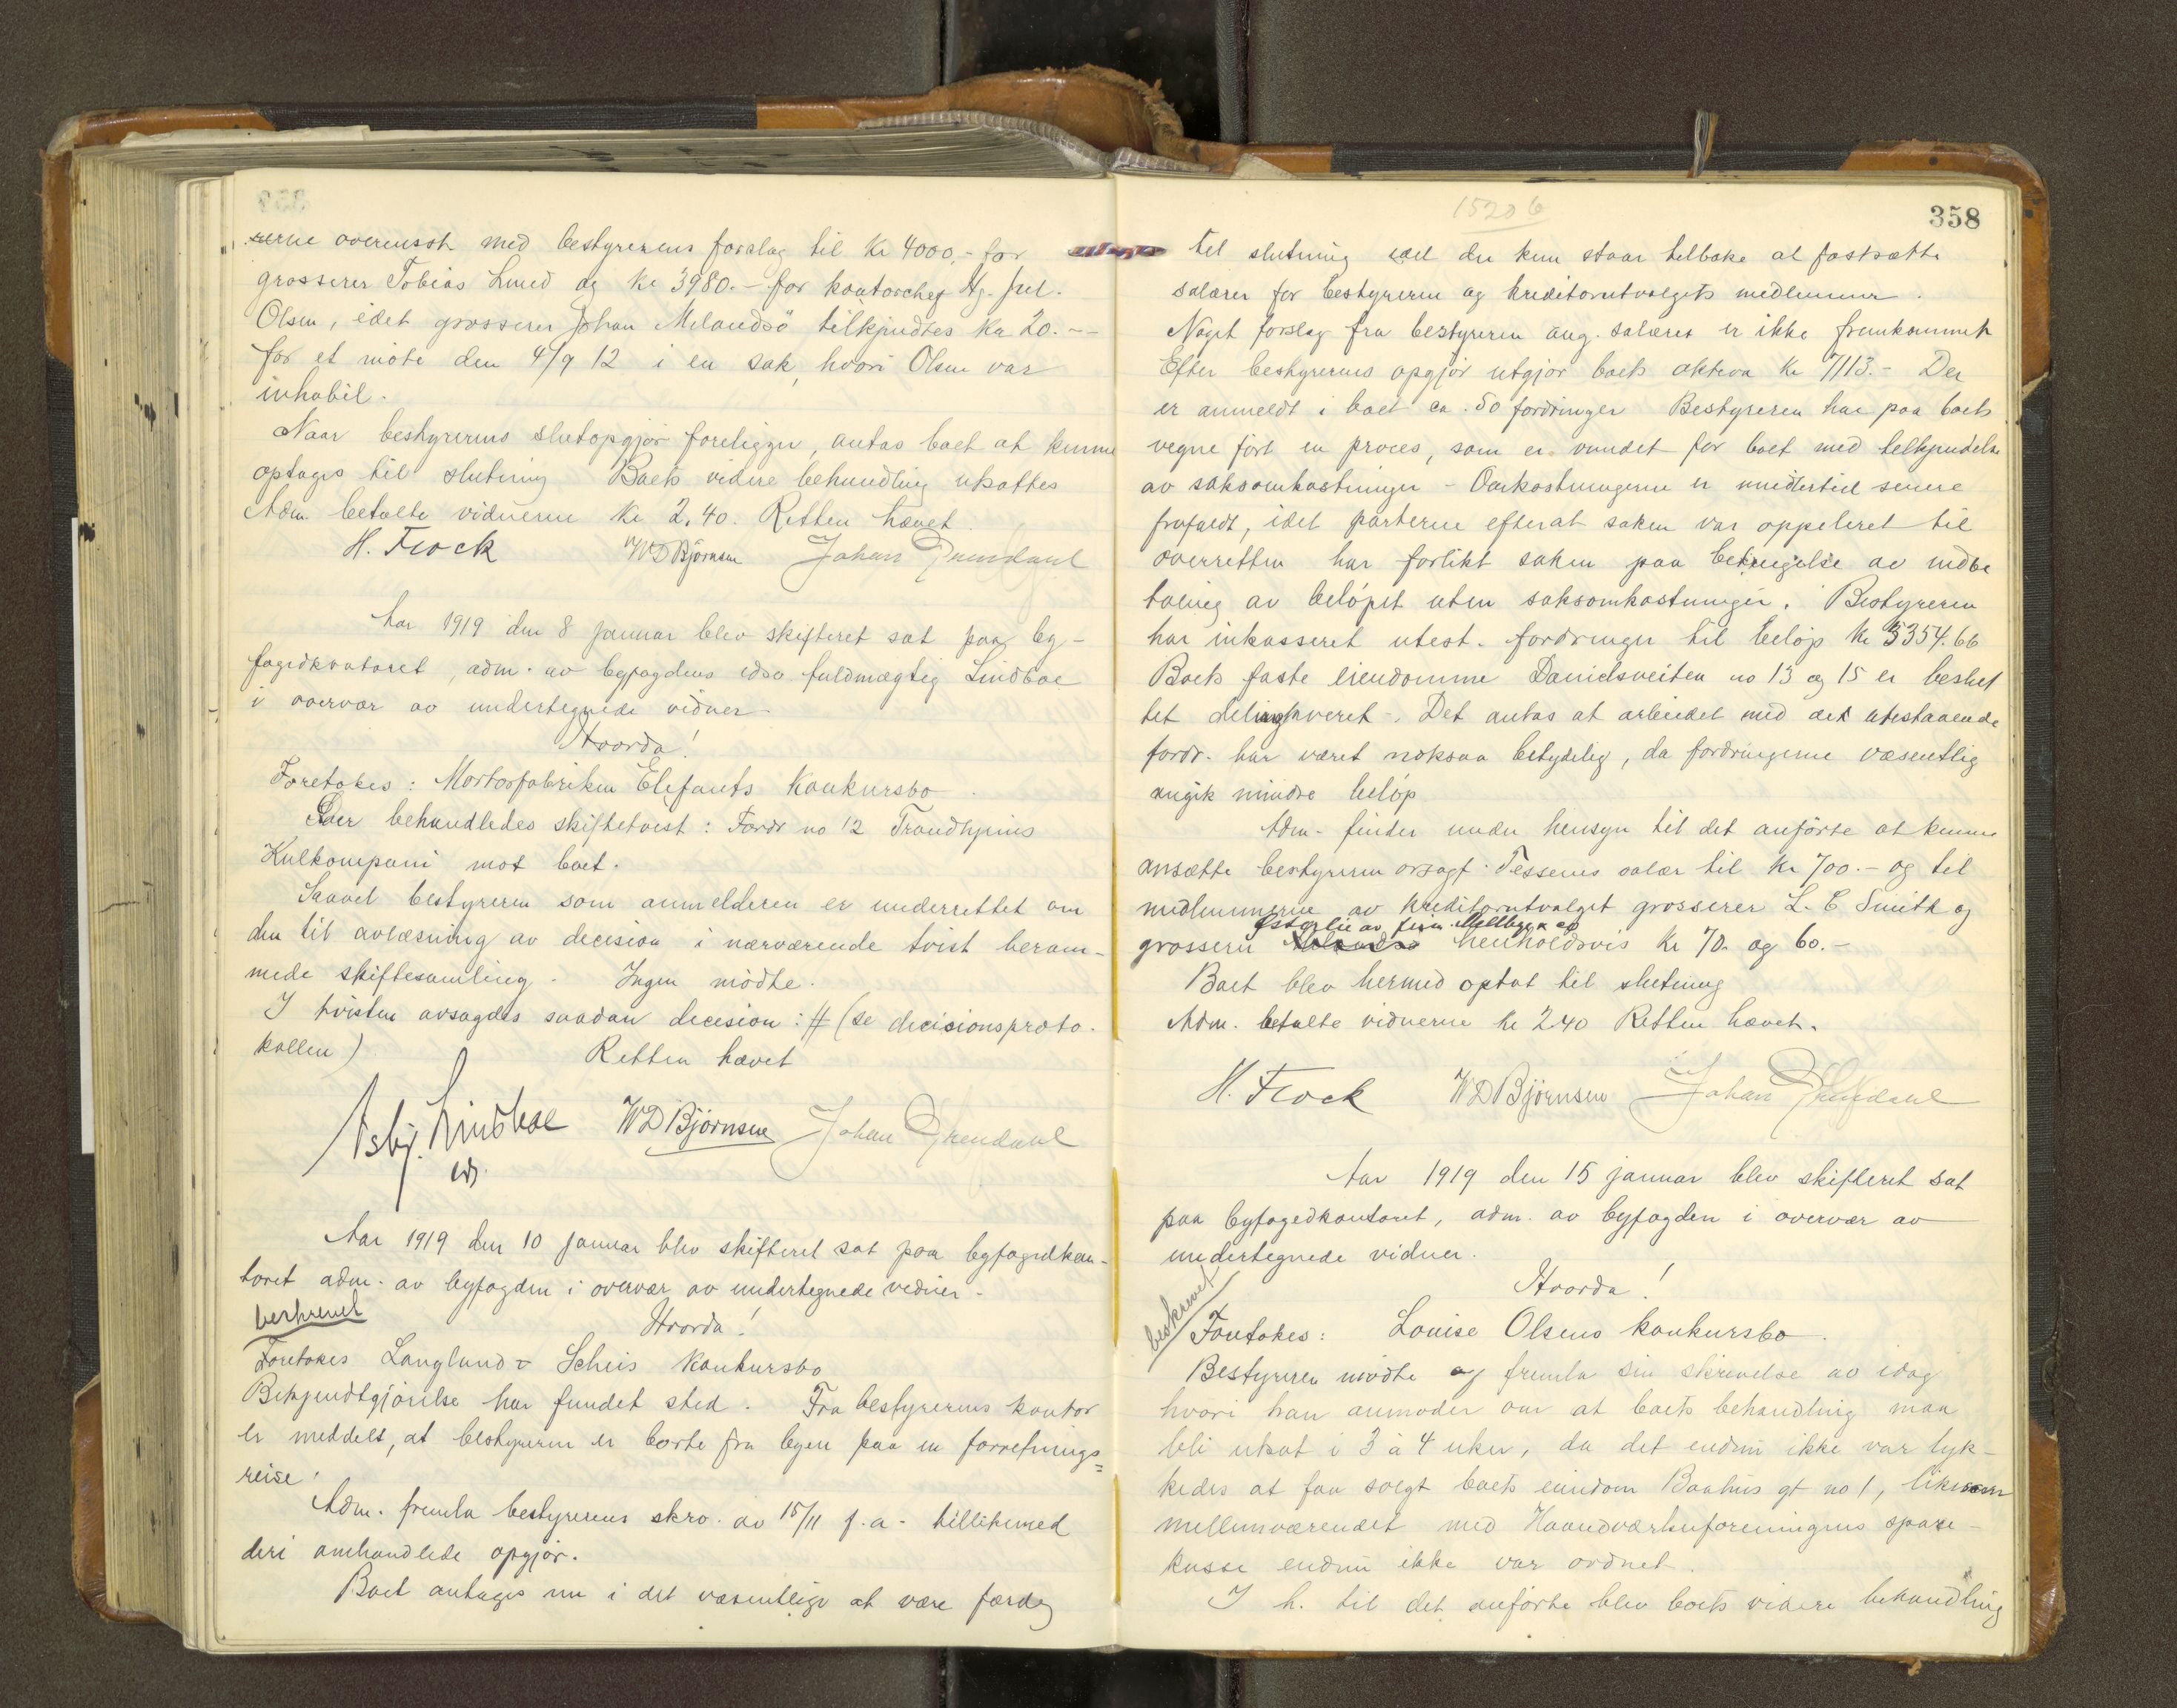 rerne overensst med bestyrerens forslag til Kr 4000,- for
grosserer Tobias Lund og Kr 3980.- for kontorchef Hj. Jul.
Olsen, idet grosserer Johan Melandsö tilkjendtes Kr 20.--
for et möte den 4/9 12 i en sak, hvori Olsen var
inhabil.
Naar bestyrerens slutopgjör foreligger, antas boet at kunne
optages til slutning Boets videre behandling utsattes
Adm. betalte vidnerne Kr 2,40. Retten hævet.
H. Flock WD Björnsen Johan Grendahl
Aar 1919 den 8 januar blev skifteret sat paa by-
fogedkontoret, adm. av byfogdens edsv fuldmægtig Lindboe
i overvær av undertegnede vidner.
Hvorda!
Foretokes: Mortorfabriken Elefants Konkursbo.
Der behandledes skiftetvist: Fordr no 12 Trondhjems
Kulkompani mot boet.
Saavel bestyreren som anmelderen er underrettet om
den til avlæsning av decision i nærværende tvist beram-
mede skiftesamling. Ingen mödte.
I tvisten avsagdes saadan decision: # (se decisionsproto-
kollen)
Retten hævet
Asbj. Lindboe WD Björnsen Johan Grendahl
Aar 1919 den 10 januar blev skifteret sat paa byfogedkon-
toret adm. av byfogden i overvær av undertegnede vidner-
beskrevet
Hvorda!
Foretokes Langlund & Scheis Konkursbo
Bekjendtgjörelse har fundet sted. Fra bestyrerens kontor
er meddelt, at bestyreren er borte fra byen paa en forretnings=
reise.
Adm. fremla bestyrerens skrv. av 15/11 f.a. tillikemed
deri omhandlede opgjör.
Boet antages nu i det væsentlige at være færdig
1520 b
358
til slutning idet der kun staar tilbake at fastsætte
salærer for bestyreren og kreditorutvalgets medlemmer.
Noget forslag fra bestyreren ang. salæret er ikke fremkommet
Efter bestyrerens opgjör utgjör boets aktiva Kr 7113.- Der
er anmeldt i boet ca. 50 fordringer Bestyreren har paa boets
vegne fört en proces, som er vundet for boet med tilkjendelse
av saksomkostninger - Omkostningerne er imidlertid senere
frafaldt, idet parterne efterat saken var appelleret til
overretten har forlikt saken paa betingelse av indbe
taling av belöpet uten saksomkostninger. Bestyreren
har inkasseret utest. fordringer til belöp Kr 5354.66
Boets faste eiendomme Danielsveiten no 13 og 15 er beslut
tet delingkveret-. Det antas at arbeidet med det utestaaende
fordr. har været noksaa betydelig, da fordringerne væsentlig
angik mindre belöp
Adm- finder under hensyn til det anförte at kunne
ansætte bestyreren orsagf. Tessems salær til Kr 700.- og til
medlemmerne av kreditorutvalget grosserer L. C Smith og
Österlie av firm. Mellbye & co
grosserer Melandsö henholdsvis Kr 70 og 60.-
Boet blev hermed optat til slutning
Adm. betalte vidnerne kr 240 Retten hævet.
H. Flock WD Björnsen Johan Grendahl
Aar 1919 den 15 januar blev skifteret sat
paa byfogedkontoret, adm. av byfogden i overvær av
undertegnede vidner.
Hvorda!
beskrevet
Foretokes: Louise Olsens konkursbo.
Bestyreren mödte og fremla sin skrivelse av idag
hvori han anmoder om at boets behandling maa
bli utsat i 3 à 4 uker, da det endnu ikke var lyk-
kedes at faa solgt boets eiendom Baahus gt no 1, likesom
mellemværendet med Haandværkerforeningens spare-
kasse endnu ikke var ordnet.
I h. til det anförte blev boets videre behandling